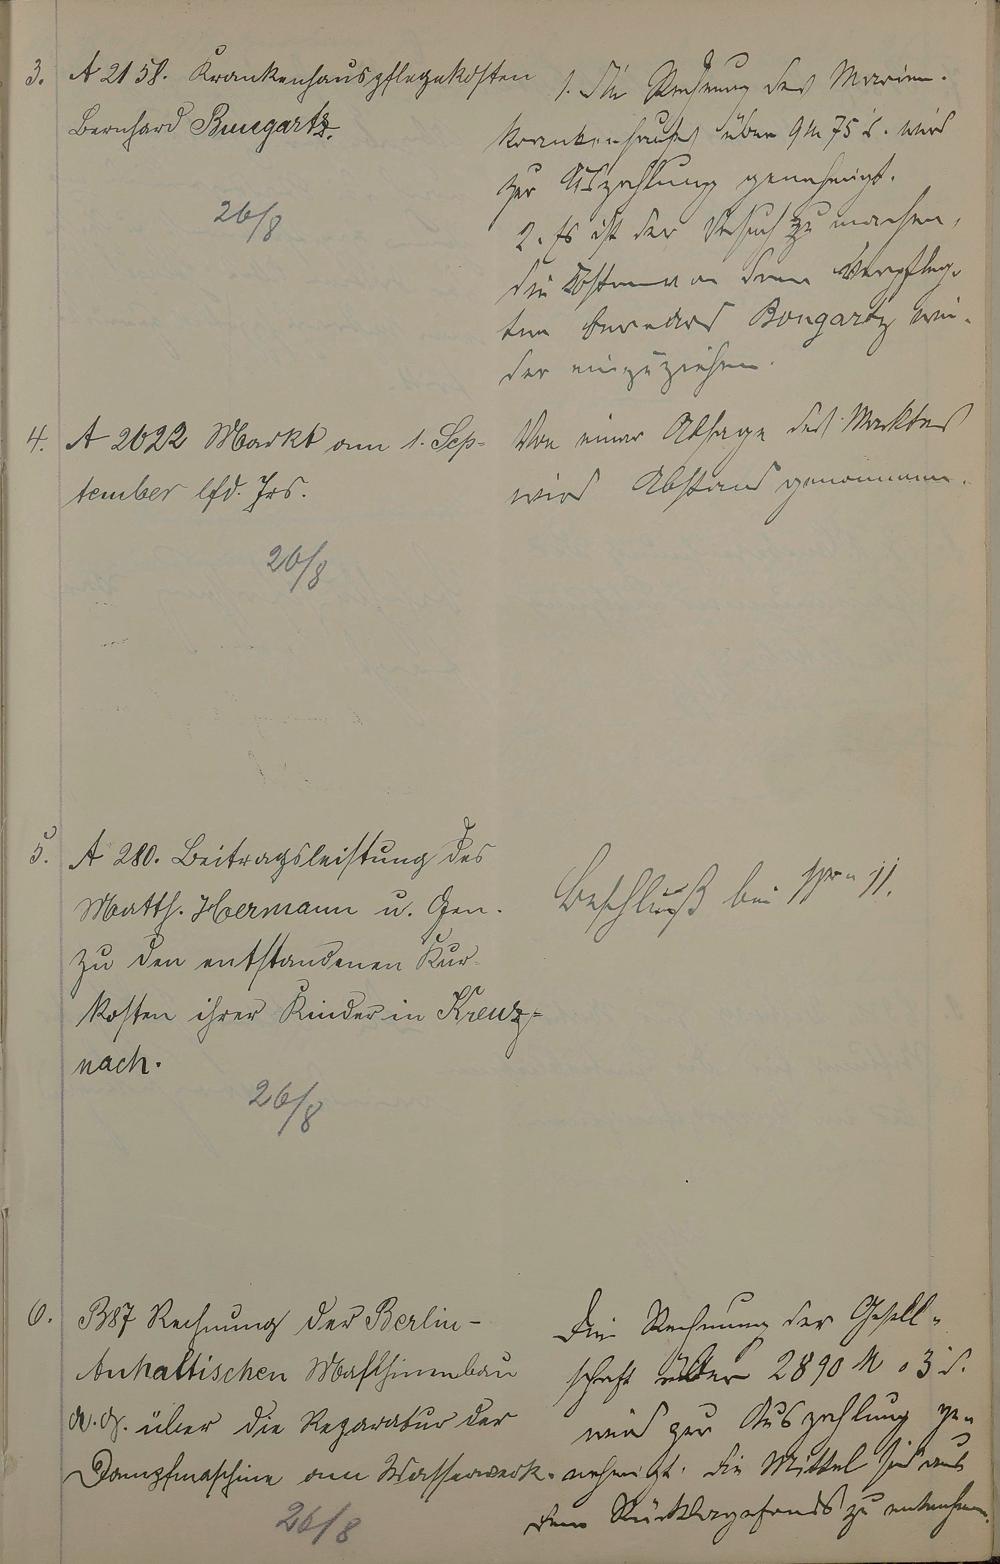 3. A 2158. Krankenhauspflegekosten
Bernhard Bungartz.
26/8
1. Die Rechnung des Marien-
krankenhauses über 9 M 75 d. wird
zur Auszahlung genehmigt.
2. Es ist der Versuch zu machen,
die Kosten von dem Verpfleg-
ten Bongartz wie-
der einzuziehen.
4. A 2022 Markt am 1. Sep-
tember lfd. Jrs.
26/8
Von einer Absage des Marktes
wird Abstand genommen.
5. A 280. Beitragsleistung des
Matth. Hermann u. Gen.
zu den entstandenen Kur-
kosten ihrer Kinder in Kreuz-
nach.
26/8
Beschluß bei 11.
6. B87 Rechnung der Berlin-
Anhaltischen Maschinenbau
A. G. über die Reparatur der
Dampfmaschine am Wasserwerk.
26/8
Die Rechnung der Gesell-
schaft über 2890 M 03 d.
wird zur Auszahlung ge-
nehmigt. Die Mittel sind aus
dem Rücklagefonds zu entnehmen.